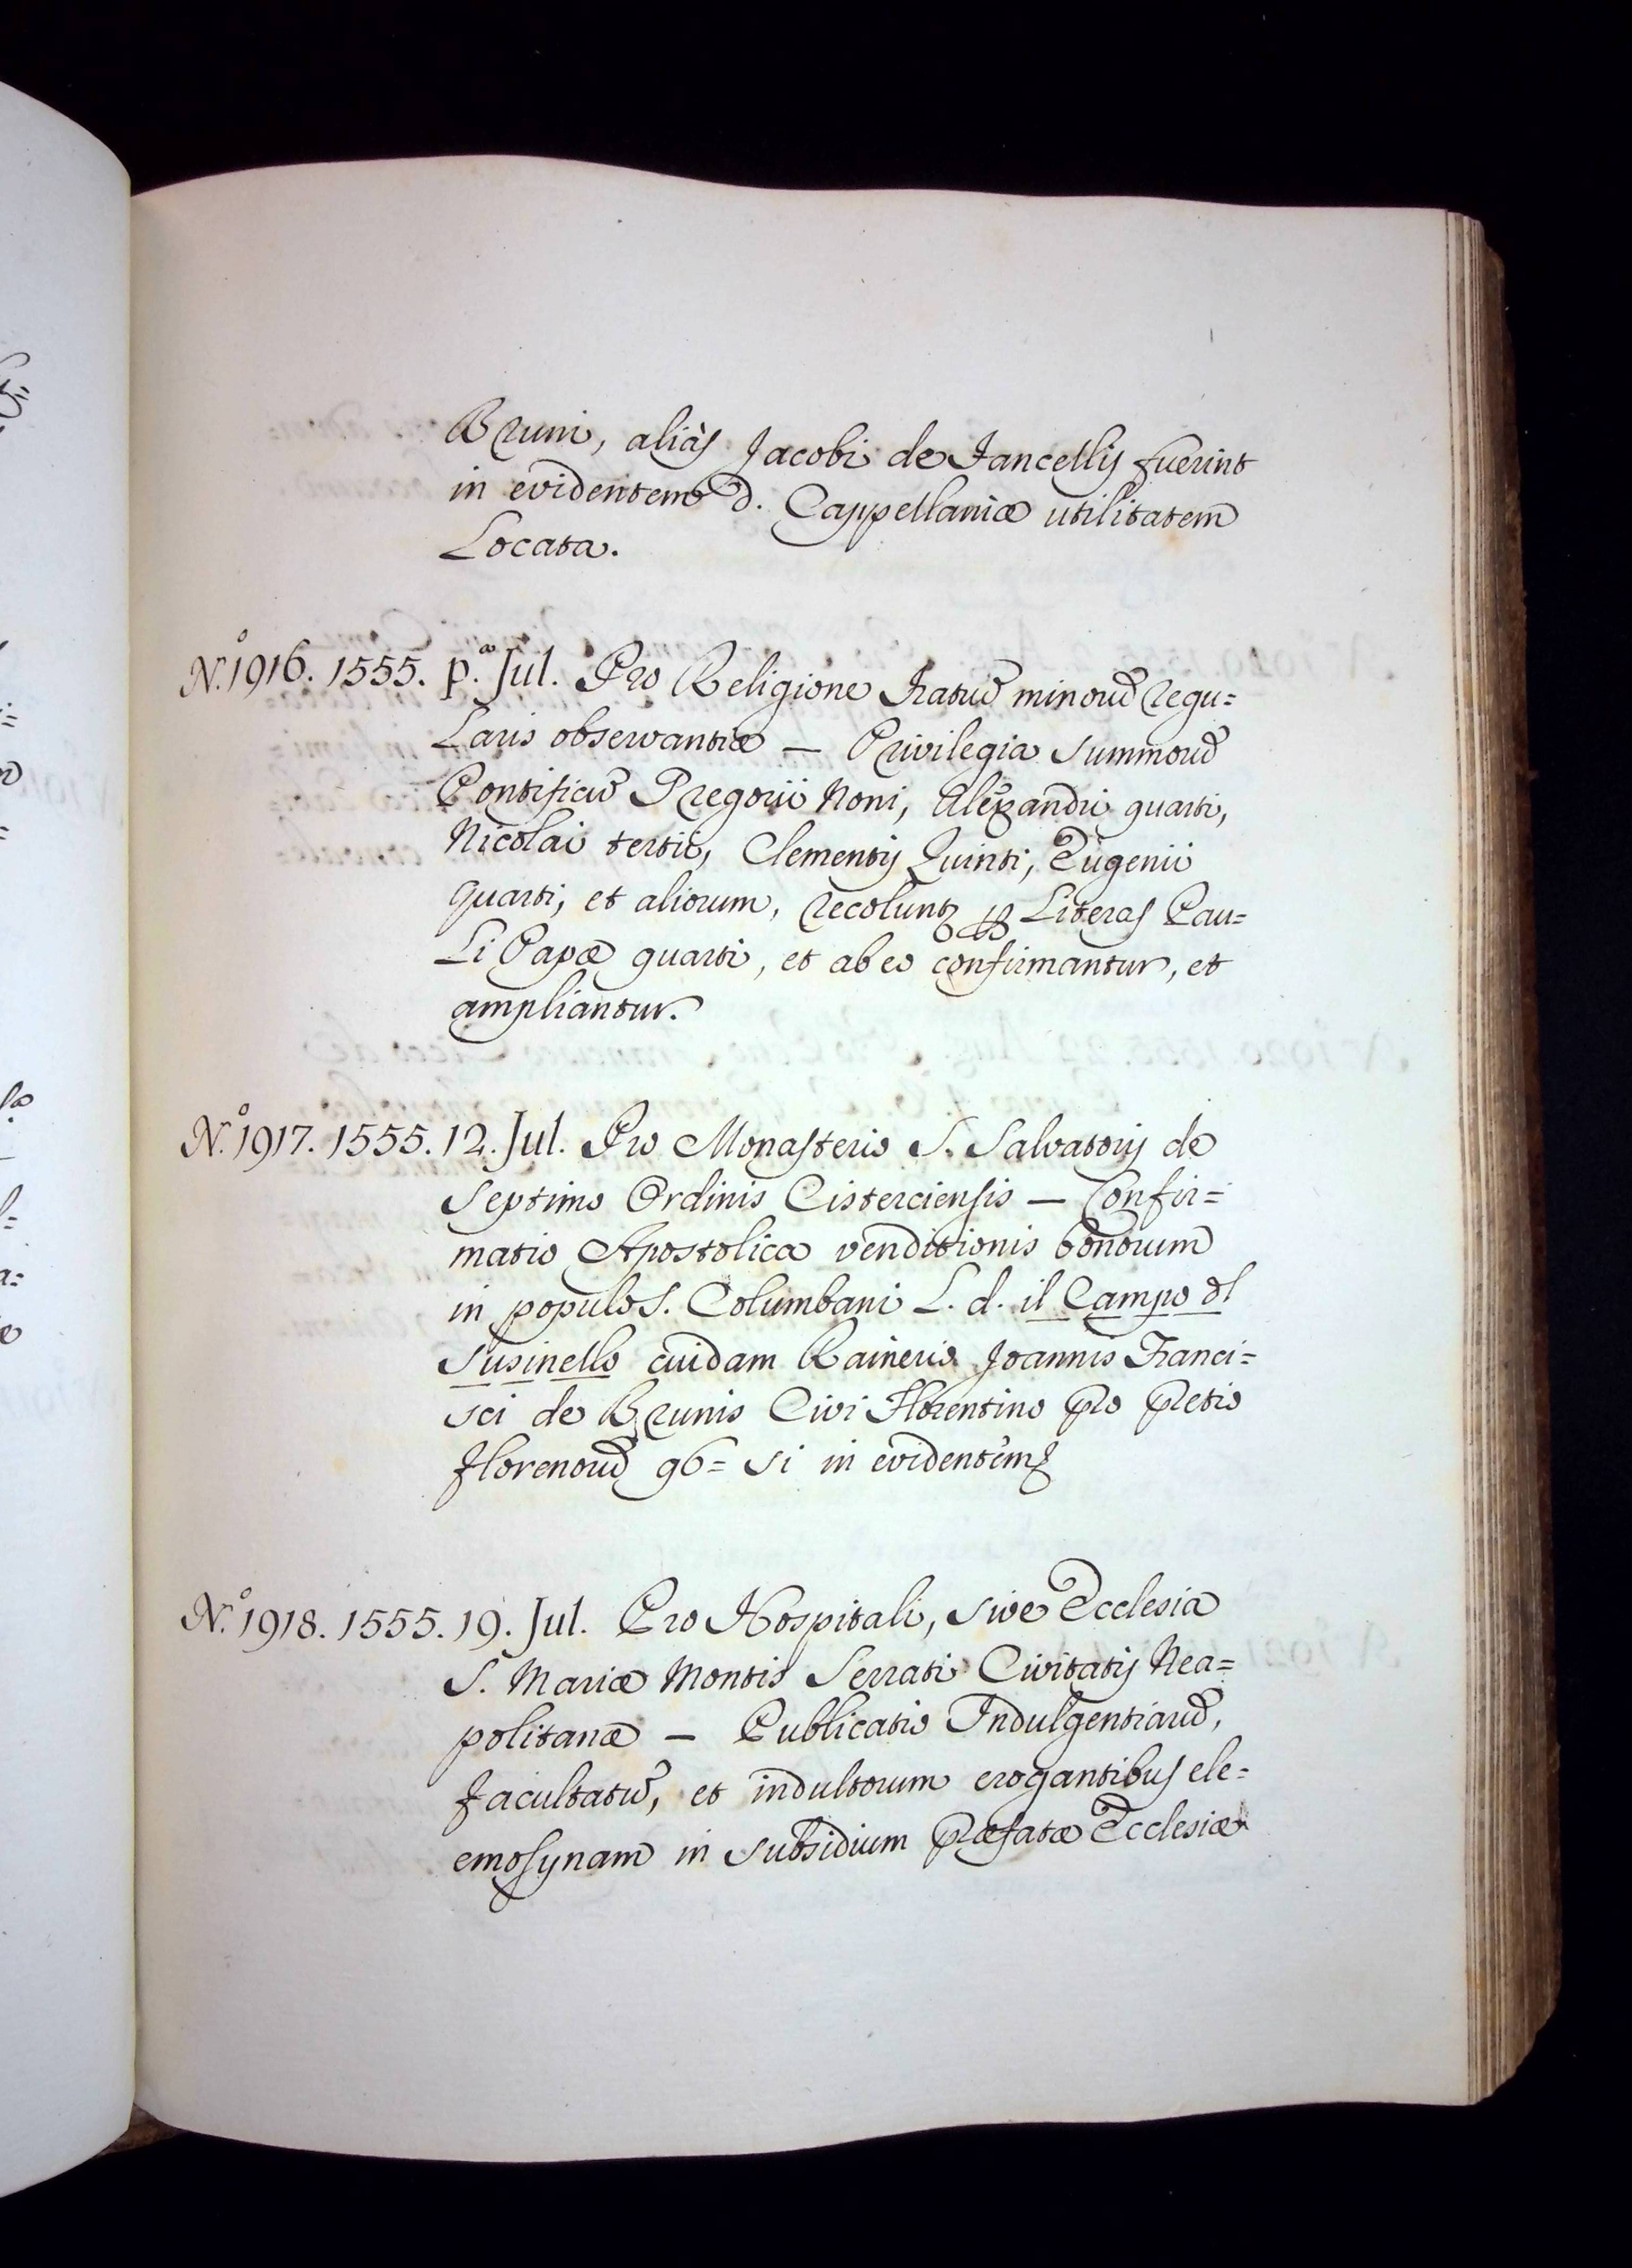 Bruni, aliàs Jacobi de Fancellis fuerint
in evidentem d. Cappellaniæ utilitatem
Locata.
N.º 1916. 1555. p.ª Jul. Pro Religione Fratuū minoruū Regu=
Laris observantiæ — Privilegia summoruū
Pontificuū Gregorii Noni, Alexandri quarti,
Nicolai tertii, Clementis Quinti, Eugenii
quarti, et aliorum, recolunt₂ ꝑ Literas Pau=
Li Papæ quarti, et ab eo confirmantur, et
ampliantur.
N.º 1917. 1555. 12. Jul. Pro Monasterio S. Salvatoris de
Septimo Ordinis Cisterciensis — Confir=
matio Apostolica venditionis bonorum
in populo S. Columbani L. d. il Campo dl
Susinello cuidam Rainerio Joannis Franci=
sci de Brunis Civi Florentino pro pretio
florenoruū 96= si in evidentem
N.º 1918. 1555. 19. Jul. Pro Hospitali, sive Ecclesia
S. Mariæ Montis Serrati Civitatis Nea=
politanæ — Publicatio Indulgentiaruū,
facultatuū, et indultorum erogantibus ele=
emosynam in subsidium præfatæ Ecclesiæ